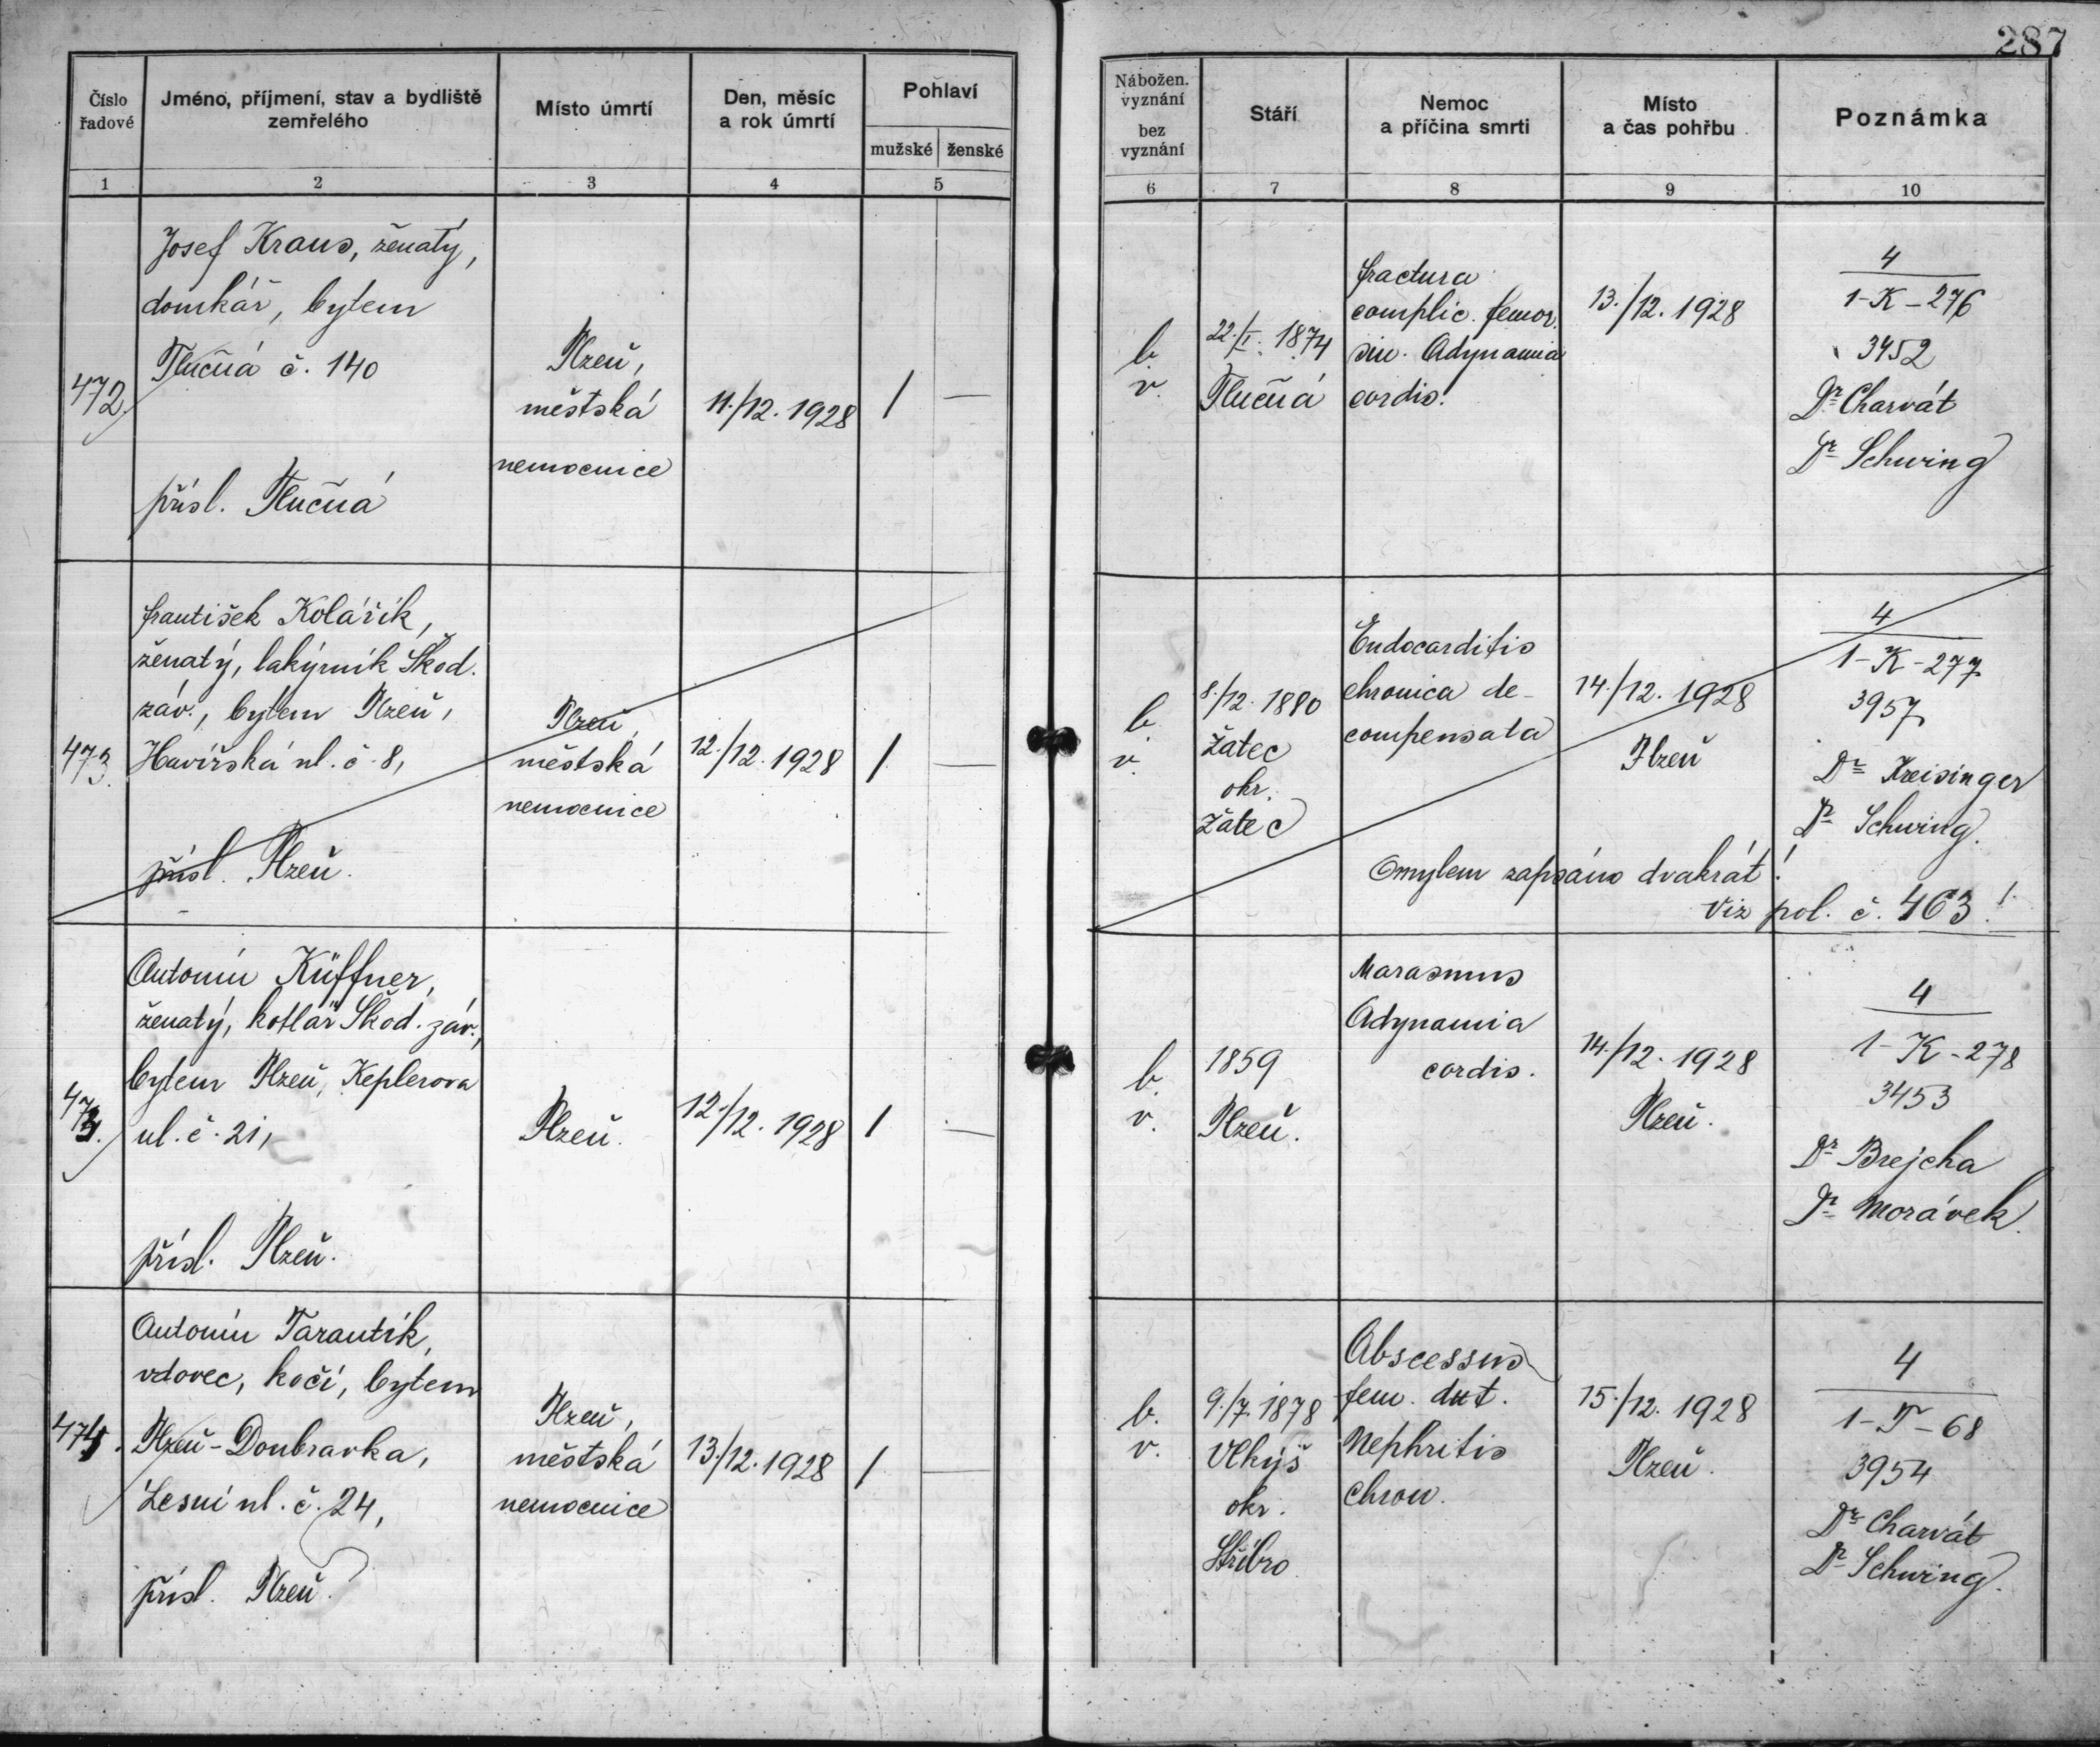 287
Číslo řadové
Jméno, příjmení, stav a bydliště zemřelého
Místo úmrtí
Den, měsíc a rok úmrtí
Pohlaví
mužské ženské
Nábožen. vyznání
bez vyznání
Stáří
Nemoc a příčina smrti
Místo a čas pohřbu
Poznámka
1 2 3 4 5 6 7 8 9 10
472
Josef Kraus, ženatý,
domkář, bytem
Tlučná č. 140
přísl. Tlučná
Plzeň,
městská
nemocnice
11./12. 1928
/ —
b.
v.
22./I. 1874
Tlučná
fractura
complic. femor.
sin. Adynamia
cordis.
13./12. 1928
4
1-K-276
3452
Dr Charvát
Dr Schwing
473.
František Kolářík,
ženatý, lakýrník Škod.
záv., bytem Plzeň,
Havířská ul. č. 8,
přísl. Plzeň.
Plzeň
městská
nemocnice
12./12. 1928
/ —
b.
v.
8./12. 1880
Žatec
okr.
Žatec
Endocarditis
chronica de-
compensata
14./12. 1928
Plzeň
4
1-K-277
3957
Dr Kreisinger
Dr Schwing.
Omylem zapsáno dvakrát!
Viz pol. č. 463!
473.
Antonín Küffner,
ženatý, kotlář Škod. záv.,
bytem Plzeň, Keplerova
ul. č. 21,
přísl. Plzeň.
Plzeň.
12./12. 1928
/ —
b.
v.
1859
Plzeň.
Marasmus
Adynamia
cordis.
14./12. 1928
Plzeň.
4
1-K-278
3453
Dr Brejcha
Dr Morávek
474.
Antonín Tarantík,
vdovec, kočí, bytem
Plzeň-Doubravka,
Lesní ul. č. 24,
přísl. Plzeň.
Plzeň,
městská
nemocnice
13./12. 1928
/ —
b.
v.
9./7. 1878
Vlkýš
okr.
Stříbro
Abscessus
fem.
Nephritis
chron.
15./12. 1928
Plzeň.
4
1-T-68
3954
Dr Charvát
Dr Schwing.